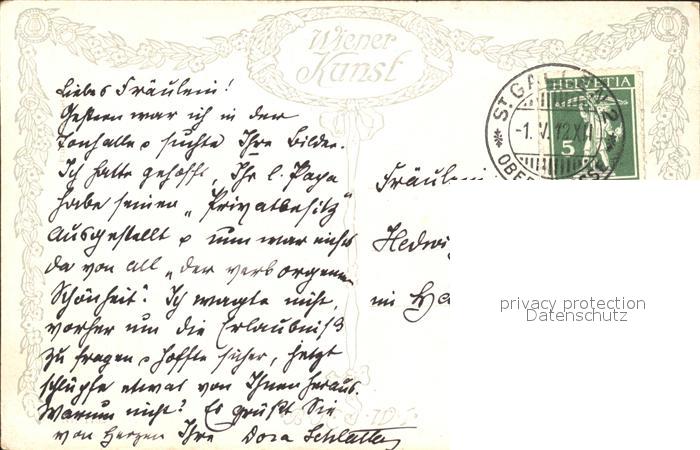 Wiener
Kunst
HELVETIA
5
ST. GALLEN 2
-1.V.12 XII
OBER
Liebes Fräulein!
Gestern war ich in der
Tonhalle & suchte Ihre Bilder.
Ich hatte gehofft, Ihr l. Papa
habe seinen „Privatbesitz"
ausgestellt & nun war nichts
da von all „der verborgenen
Schönheit". Ich wagte nicht,
vorher um die Erlaubniß
zu fragen & hoffte sicher, jetzt
schlüpfe etwas von Ihnen heraus.
Warum nicht? Es grüßt Sie
von Herzen Ihre Dora Schlatter
Fräulein
Hedwi
in
privacy protection
Datenschutz